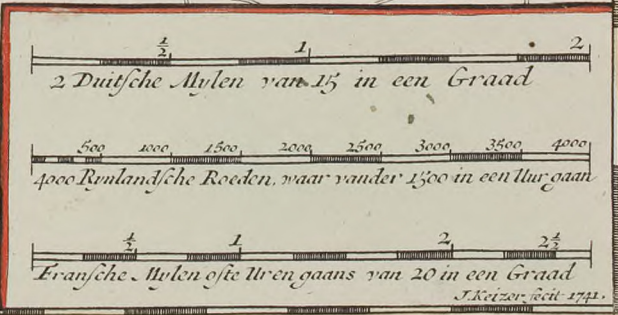 ½ 1 2
2 Duitsche Mylen van 15 in een Graad
500 1000 1500 2000 2500 3000 3500 4000
4000 Rynlandsche Roeden, waar vander 1500 in een Uur gaan
½ 1 2 2½
Fransche Mylen ofte Uren gaans van 20 in een Graad
J. Keizer fecit 1741.